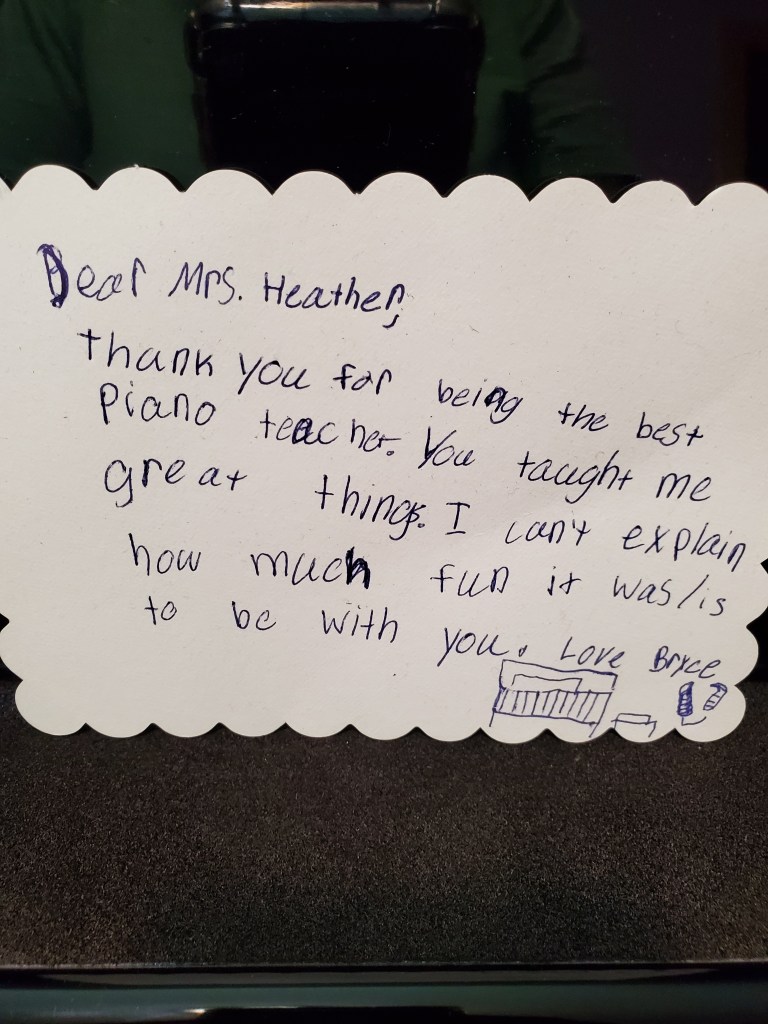 Dear Mrs. Heather,
thank you for being the best
piano teacher. You taught me
great things. I can't explain
how much fun it was/is
to be with you. Love Bryce